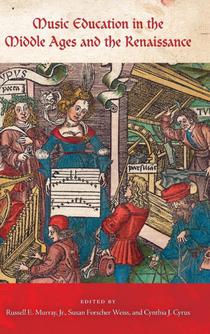 Music Education in the
Middle Ages and the Renaissance
poeta
TV
EDITED BY
Russell E. Murray, Jr., Susan Forscher Weiss, and Cynthia J. Cyrus